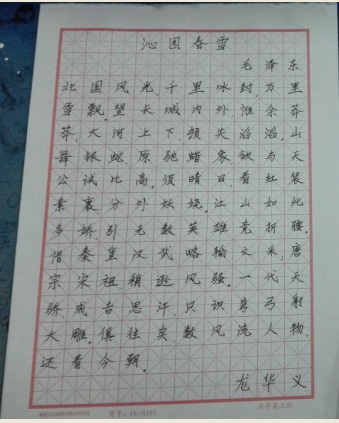 沁园春雪
毛泽东
北国风光,千里冰封,万里
雪飘,望长城内外,惟余莽
莽,大河上下,顿失滔滔,山
舞银蛇,原驰蜡象,欲与天
公试比高,须晴日,看红装
素裹,分外妖娆,江山如此
多娇,引无数英雄竞折腰,
惜秦皇汉武,略输文采,唐
宗宋祖,稍逊风骚,一代天
骄,成吉思汗,只识弯弓射
大雕,俱往矣,数风流人物,
还看今朝。
龙华义